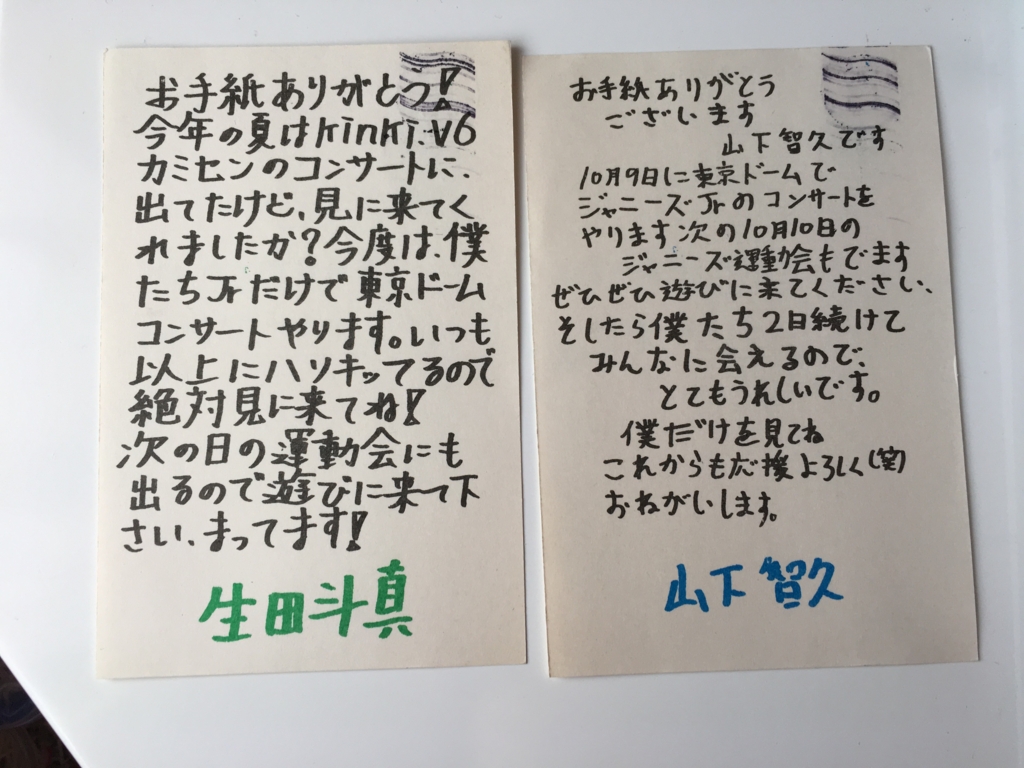 お手紙ありがとう!
今年の夏はkinki.V6
カミセンのコンサートに、
出てたけど、見に来てく
れましたか?今度は、僕
たちJrだけで東京ドーム
コンサートやります。いつも
以上にハリキッてるので
絶対見に来てね!
次の日の運動会にも
出るので遊びに来て下
さい、まってます!
生田斗真
お手紙ありがとう
ございます
山下智久です
10月9日に東京ドームで
ジャニーズJrのコンサートを
やります次の10月10日の
ジャニーズ運動会もでます
ぜひぜひ遊びに来てください、
そしたら僕たち2日続けて
みんなに会えるので、
とてもうれしいです。
僕だけを見てね
これからも応援よろしく(笑)
おねがいします。
山下智久